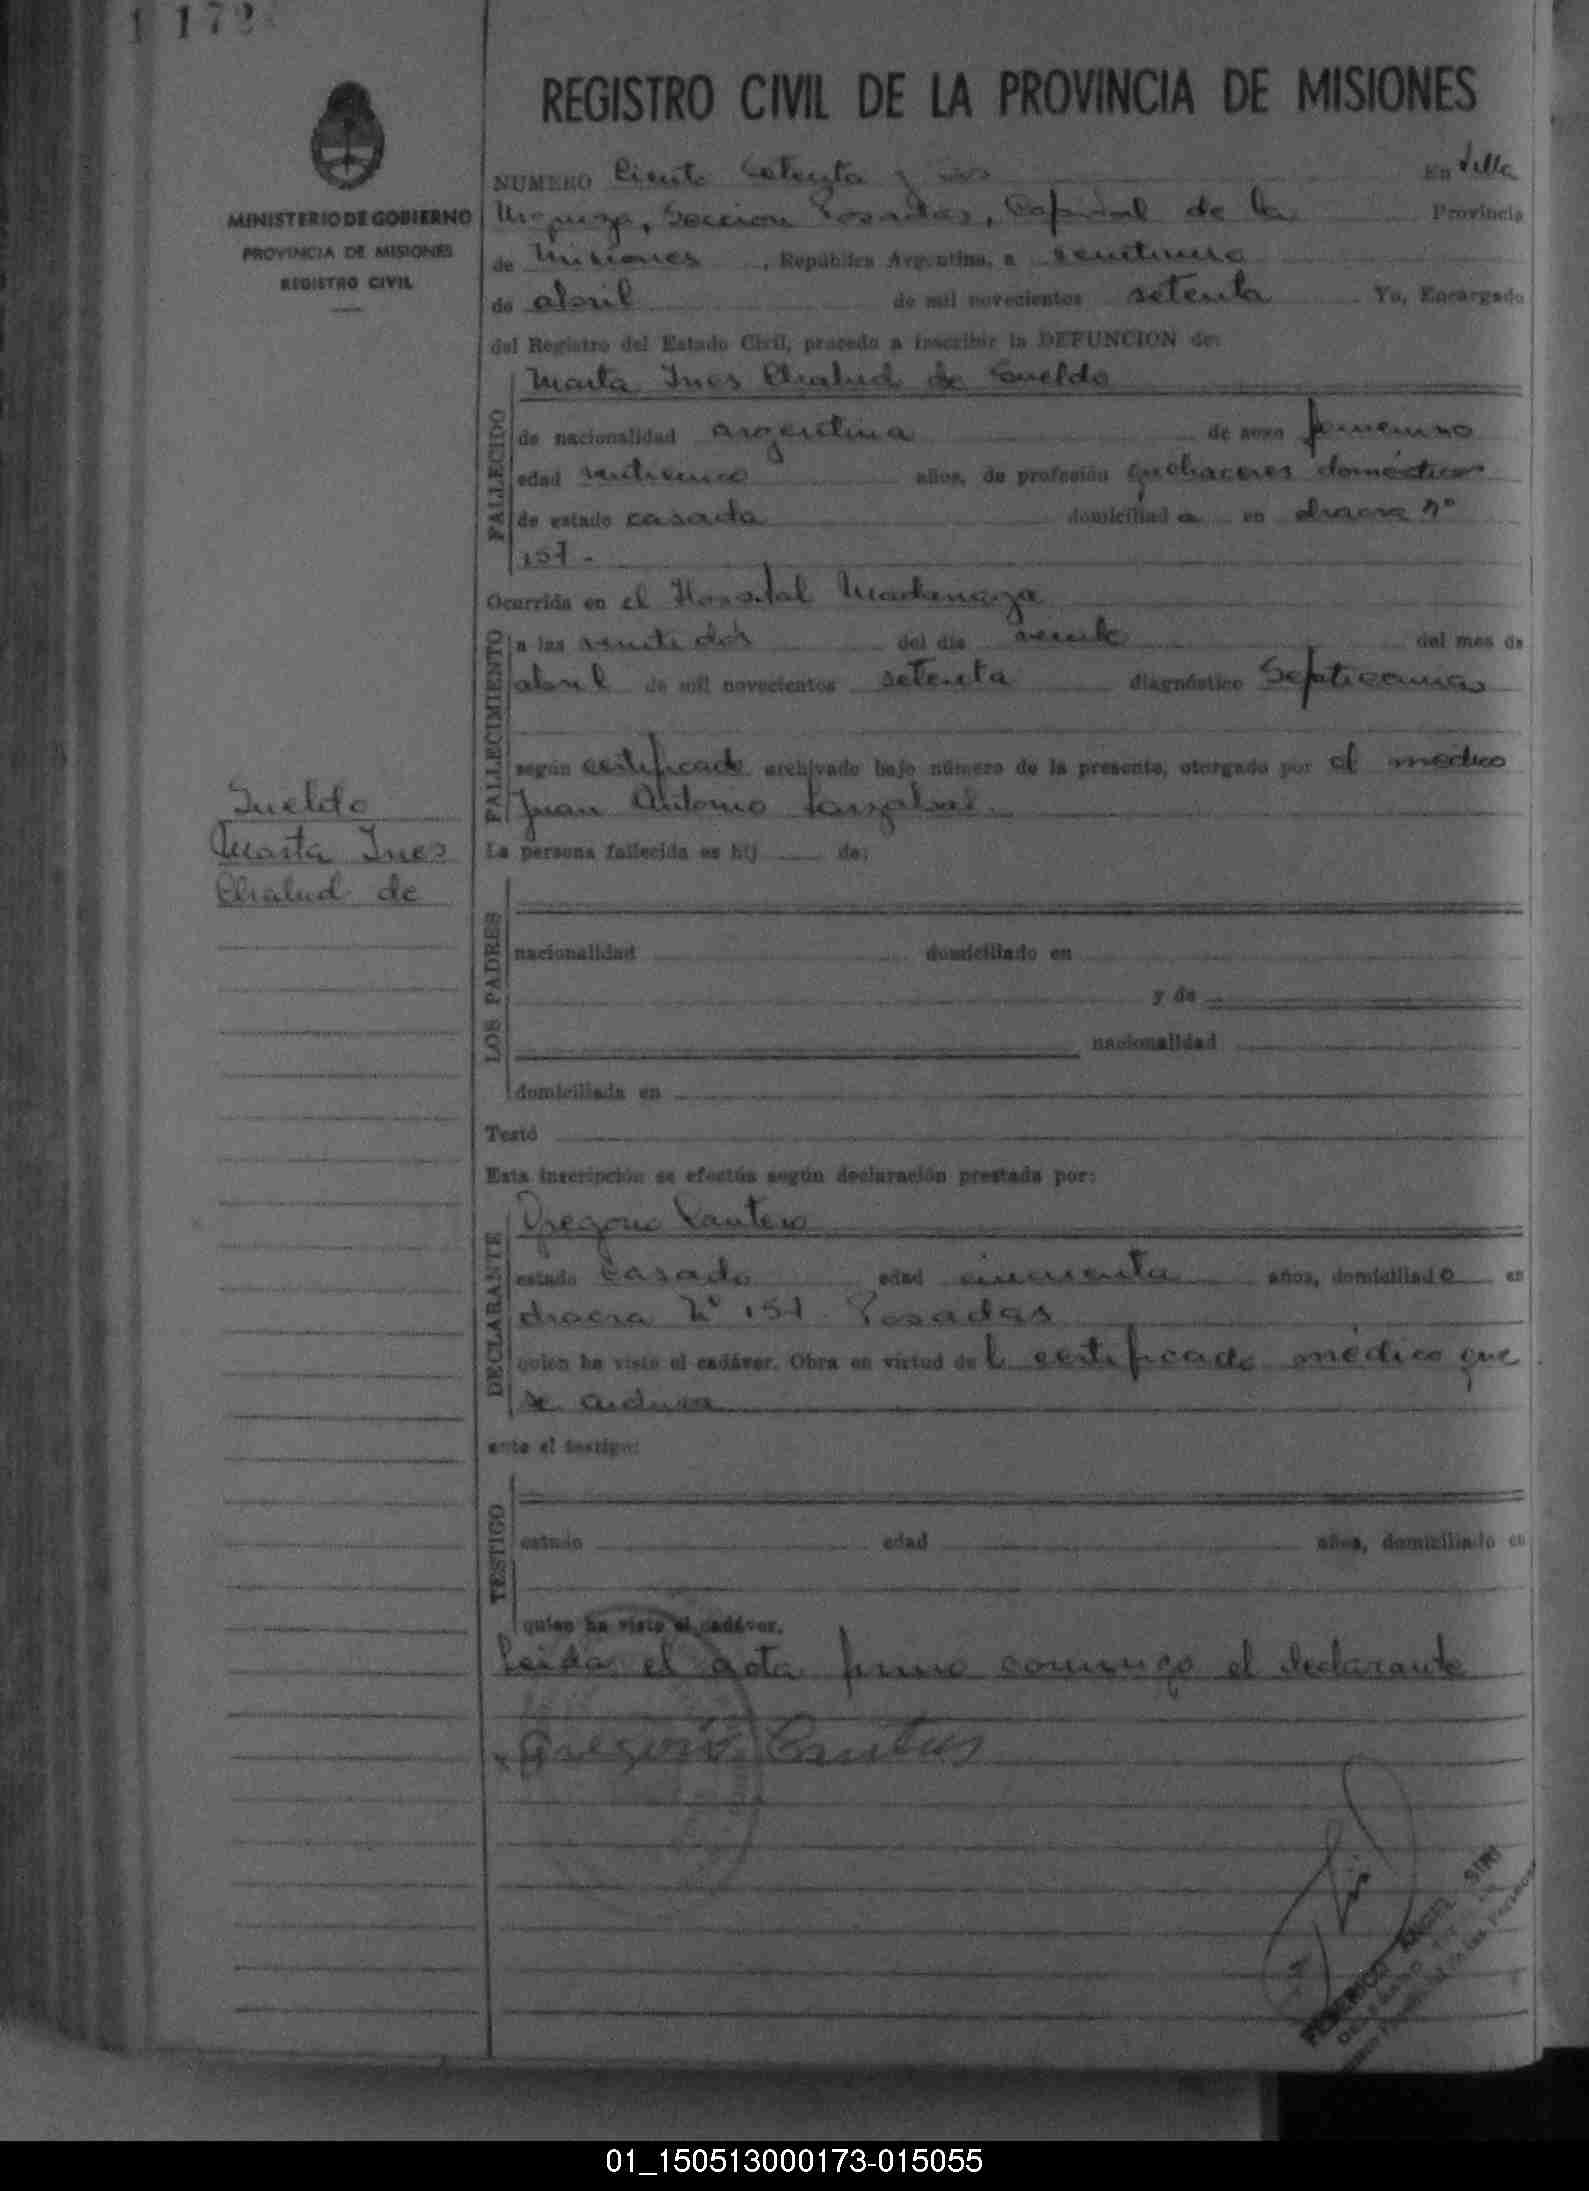 1 172
REGISTRO CIVIL DE LA PROVINCIA DE MISIONES
MINISTERIO DE GOBIERNO
PROVINCIA DE MISIONES
REGISTRO CIVIL
NUMERO Ciento Setenta y dos En Villa
Urquiza, Sección Posadas, Capital de la Provincia
de Misiones, República Argentina, a veintiuno
de abril de mil novecientos setenta Yo, Encargado
del Registro del Estado Civil, procedo a inscribir la DEFUNCION de:
FALLECIDO
Marta Ines Chalud de Sueldo
de nacionalidad argentina de sexo femenino
edad años, de profesión quehaceres domésticos
de estado casada domiciliad a en chacra nº
157.-
Ocurrida en el Hospital Madariaga
FALLECIMIENTO
a las veinte dos del día veinte del mes de
abril de mil novecientos setenta diagnóstico Septicemia
según certificado archivado bajo número de la presente, otorgado por el médico
Juan Antonio
Sueldo
Marta Ines
Chalud de
La persona fallecida es hij de:
LOS PADRES
nacionalidad domiciliado en
y de
nacionalidad
domiciliada en
Testó
Esta inscripción se efectúa según declaración prestada por:
DECLARANTE
Gregorio Cantero
estado casado edad cincuenta años, domiciliado en
chacra Nº 157. Posadas
quien ha visto el cadáver. Obra en virtud de l certificado médico que
se archiva
ante el testigo:
TESTIGO
estado edad años, domiciliado en
quien ha visto el cadáver.
Leida el acta firma conmigo el declarante
Gregorio Cantero
FEDERICO ANGEL SIRI
01_150513000173-015055